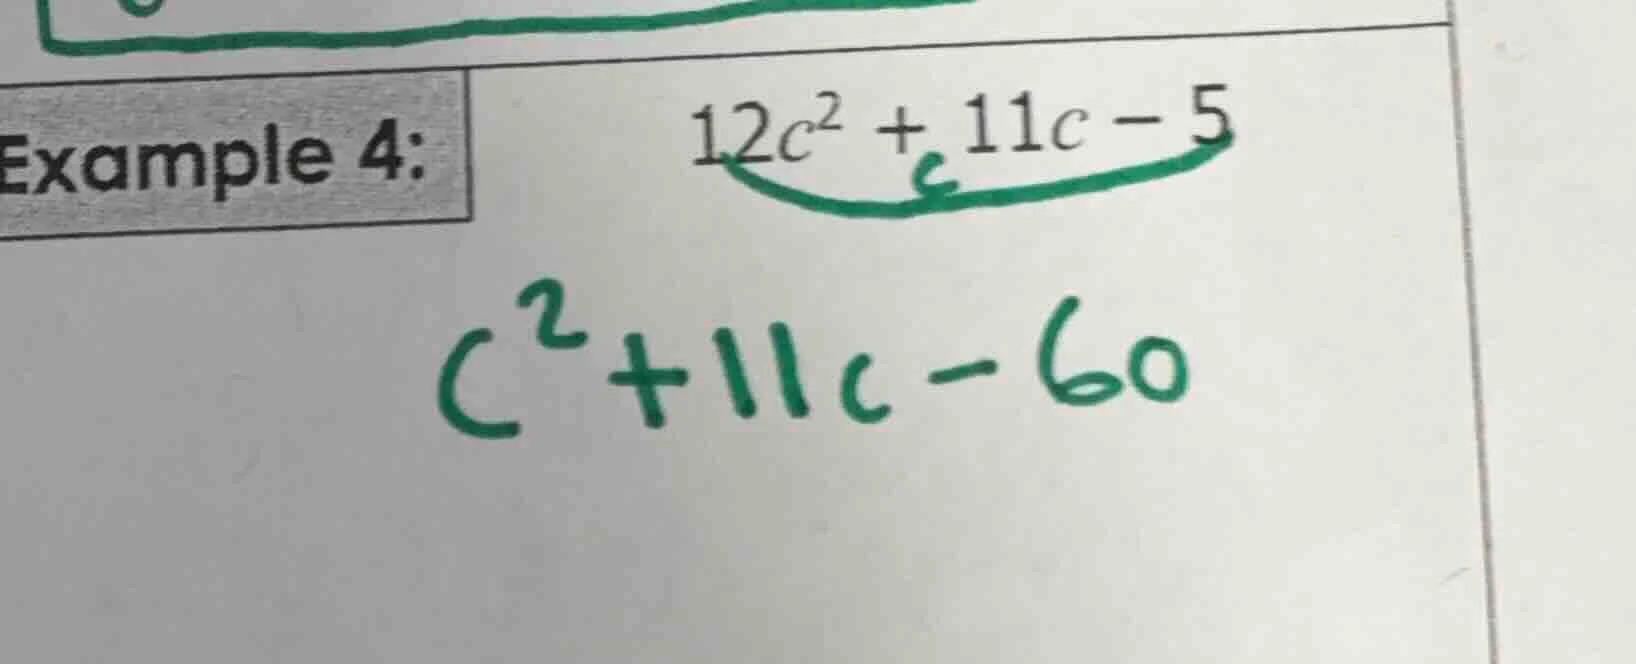 Example 4:
12c² + 11c − 5
c
c² + 11c − 60